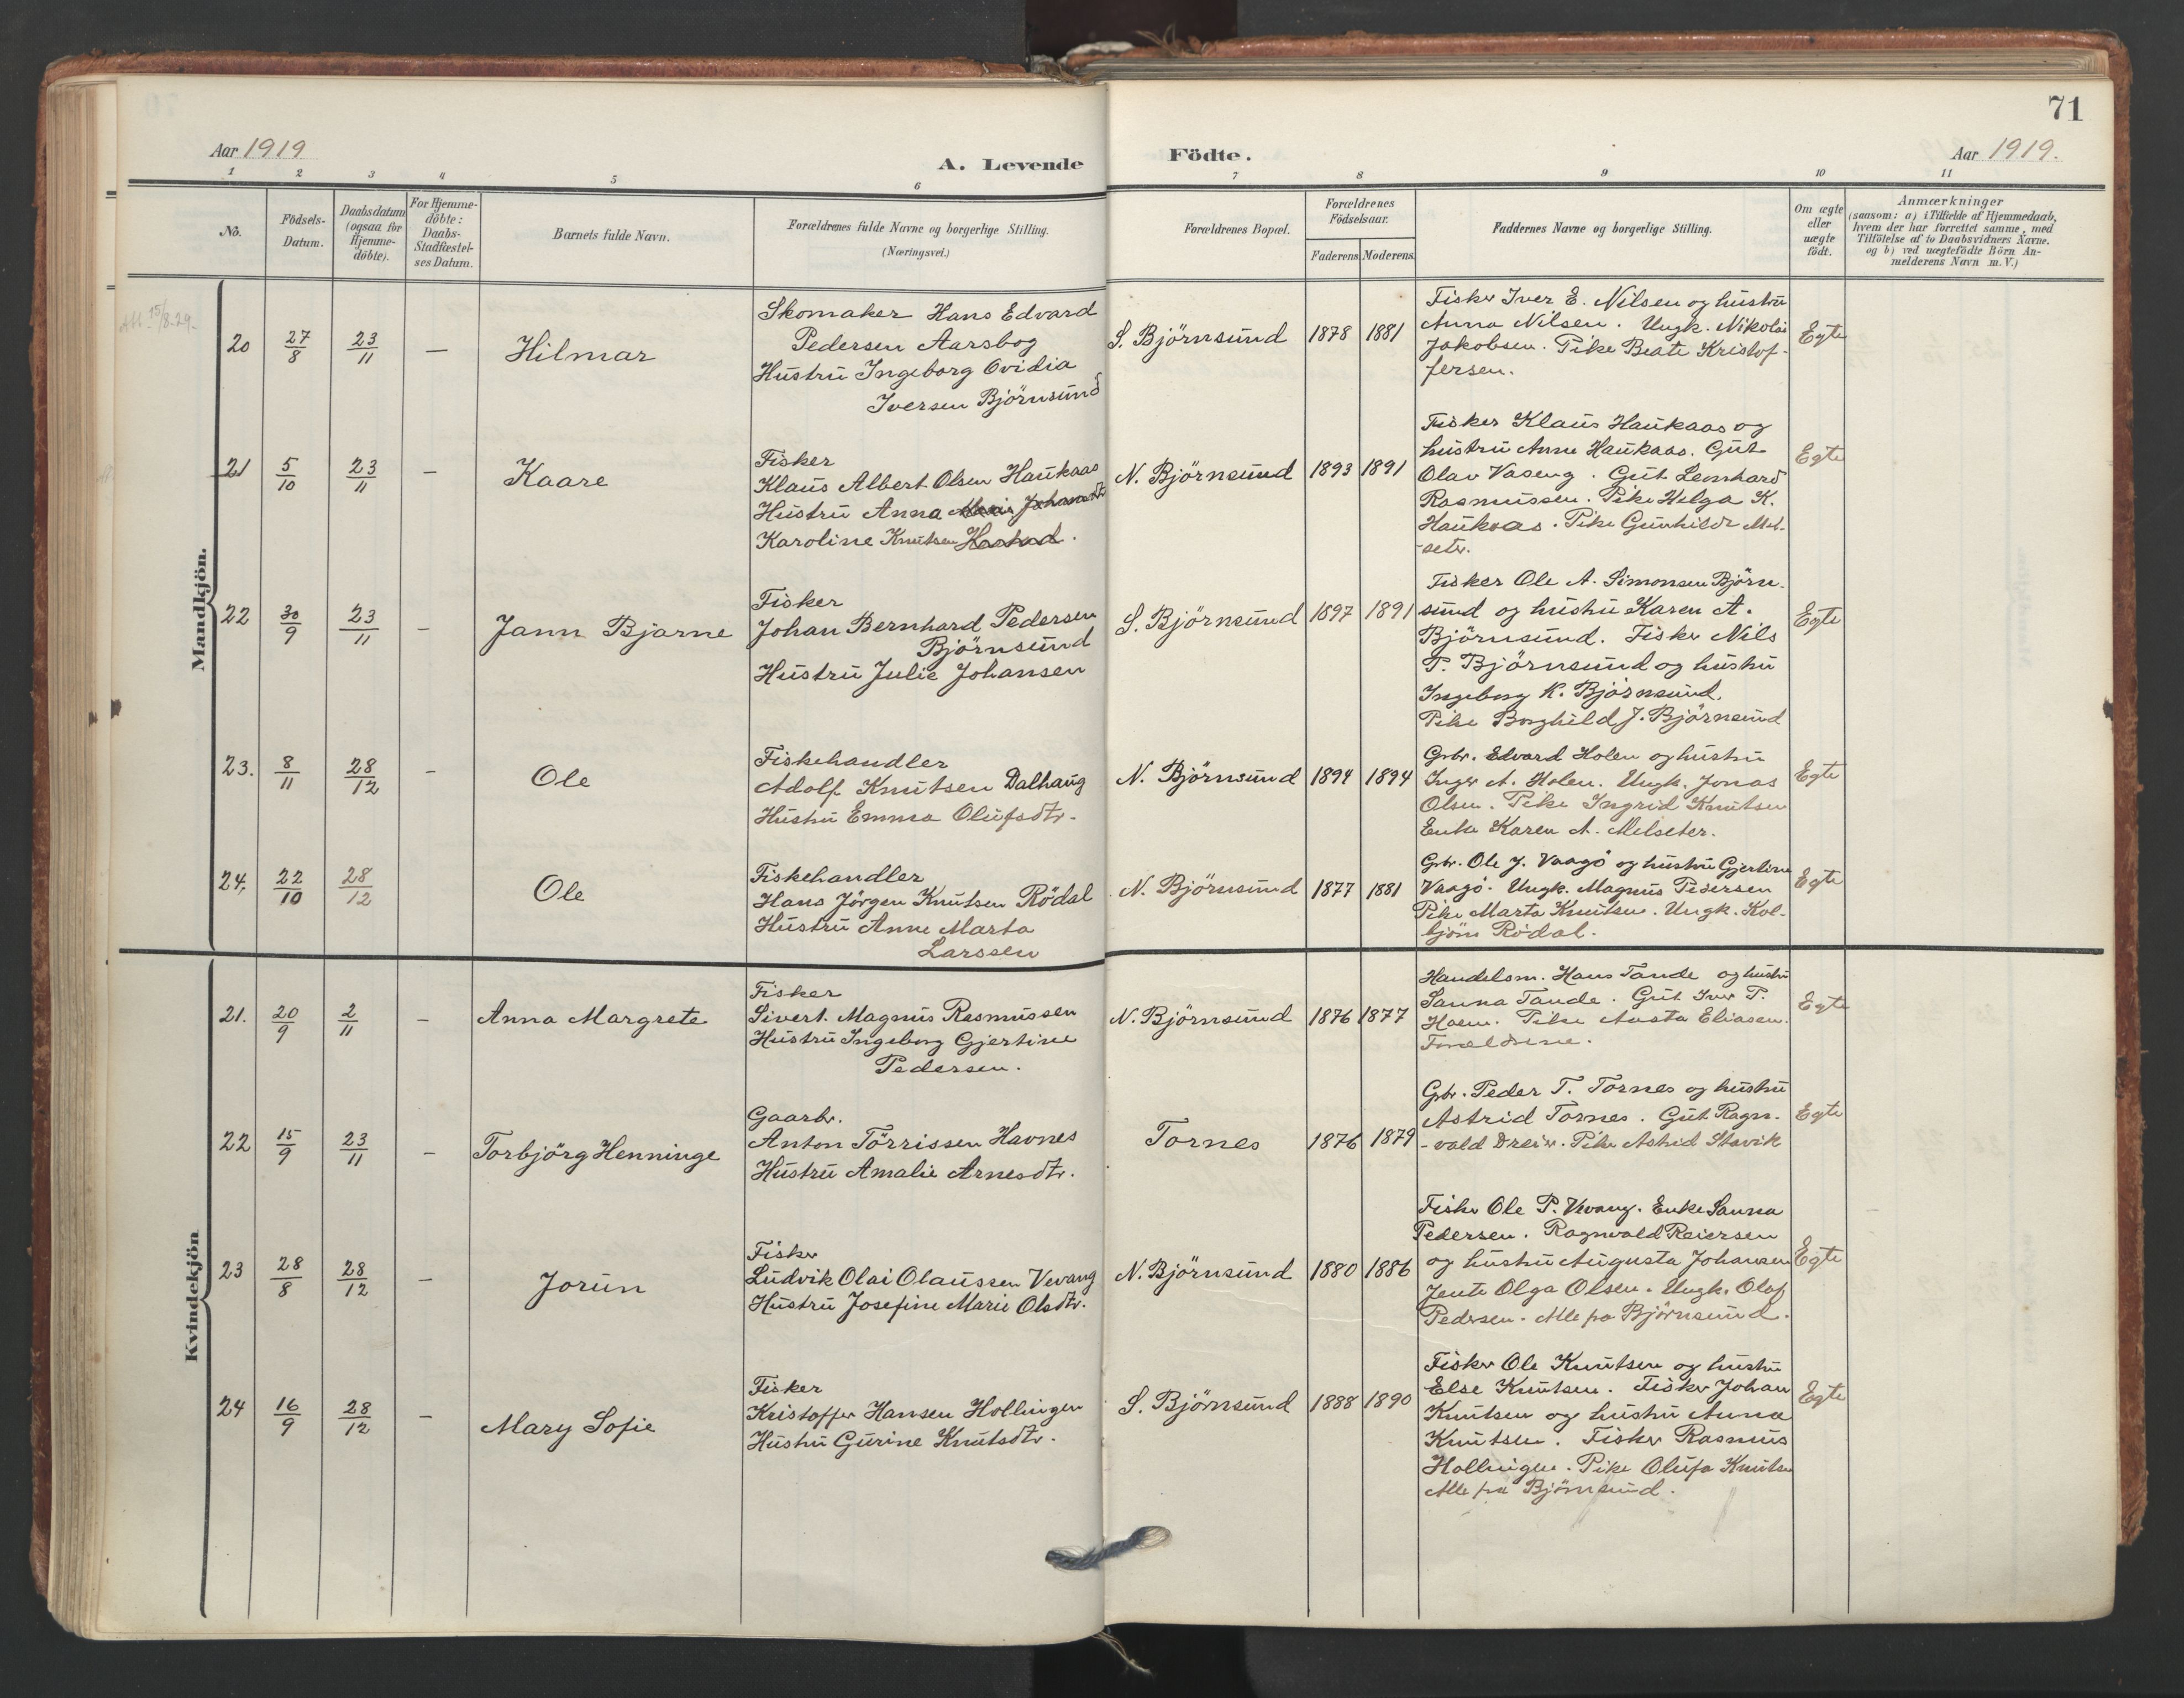 71
Aar 1919
A. Levende Födte.
Aar 1919.
1 2 3 4 5 6 7 8 9 10 11
No.
Födsels-
Datum.
Daabsdatum
(ogsaa for
Hjemme-
döbte).
For Hjemme-
döbte:
Daabs-
Stadfæstel-
ses Datum.
Barnets fulde Navn.
Forældrenes fulde Navne og borgerlige Stilling.
(Næringsvei.)
Forældrenes Bopæl.
Forældrenes
Födselsaar.
Faderens. Moderens.
Faddernes Navne og borgerlige Stilling.
Om ægte
eller
uægte
födt.
Anmærkninger
(saasom: a) i Tilfælde af Hjemmedaab,
hvem der har forrettet samme, med
Tilföielse af to Daabsvidners Navne.
og b) ved uægtefödte Börn An-
melderens Navn m. V.)
Mandkjön.
15/8.29.
20
27/8
23/11
—
Hilmar
Skomaker Hans Edvard
Pedersen Aarsbog
Hustru Ingeborg Ovidia
Iversen Björnsund
S. Björnsund
1878
1881
Fisker Iver E. Nilsen og hustru
Anna Nilsen. Ungk. Nikolai
Jakobsen. Pike Beate Kristof-
fersen.
Egte
21
5/10
23/11
—
Kaare
Fisker
Klaus Albert Olsen Haukaas
Hustru Anna
Karoline Knutsen
N. Björnsund
1893
1891
Fisker Klaus Haukaas og
hustru Anne Haukaas. Gut
Olav Vaseng. Gut Leonhard
Rasmussen. Pike Helga K.
Haukaas. Pike Gunhild Mel-
seter.
Egte
22
30/9
23/11
—
Jann Bjarne
Fisker
Johan Bernhard Pedersen
Björnsund
Hustru Julie Johansen
S. Björnsund
1897
1891
Fisker Ole A. Simonsen Björn-
sund og hustru Karen A.
Björnsund. Fisker Nils
P. Björnsund og hustru
Ingeborg K. Björnsund.
Pike Borghild J. Björnsund
Egte
23.
8/11
28/12
—
Ole
Fiskehandler
Adolf Knutsen Dalhaug
Hustru Emma Olufsdtr.
N. Björnsund
1894
1894
Grbr. Edvard Holen og hustru
Inger A. Holen. Ungk. Jonas
Olsen. Pike Ingrid Knutsen
Enke Karen A. Melseter.
Egte
24.
22/10
28/12
Ole
Fiskehandler
Hans Jörgen Knutsen Rödal
Hustru Anne Marta
Larssen
N. Björnsund
1877
1881
Grbr. Ole J. Vaagö og hustru Gjertine
Vaagö. Ungk. Magnus Pedersen
Pike Marta Knutsen. Ungk. Kol-
björn Rödal.
Egte
Kvindekjön
21.
20/9
2/11
—
Anna Margrete
Fisker
Sivert Magnus Rasmussen
Hustru Ingeborg Gjertine
Pedersen.
N. Björnsund
1876
1877
Handelsm. Hans Tande og hustru
Sanna Tande. Gut Iver P.
Haem. Pike Aasta Eliasen.
Forældrene.
Egte
22
15/9
23/11
—
Torbjörg Henninge
Gaarbr.
Anton Törrissen Havnes
Hustru Amalie Arnesdtr.
Tornes
1876
1879
Grbr. Peder T. Tornes og hustru
Astrid Tornes. Gut Ragn-
-vald Dreier. Pike Astrid Stavik
Egte
23
28/8
28/12
—
Jorun
Fisker
Ludvik Olai Olaussen Vevang
Hustru Josefine Marie Olsdtr.
N. Björnsund
1880
1886
Fisker Ole P. Vevang. Enke Sanna
Pedersen. Ragnvald Reiersen
og hustru Augusta Johansen
Jente Olga Olsen. Ungk. Olaf
Pedersen. Alle fra Björnsund.
Egte
24
16/9
28/12
—
Mary Sofie
Fisker
Kristoffer Hansen Hollingen
Hustru Gurine Knutsdtr.
S. Björnsund
1888
1890
Fisker Ole Knutsen og hustru
Else Knutsen. Fisker Johan
Knutsen og hustru Anna
Knutsen. Fisker Rasmus
Hollingen. Pike Olufa Knutsen
Alle fra Björnsund.
Egte